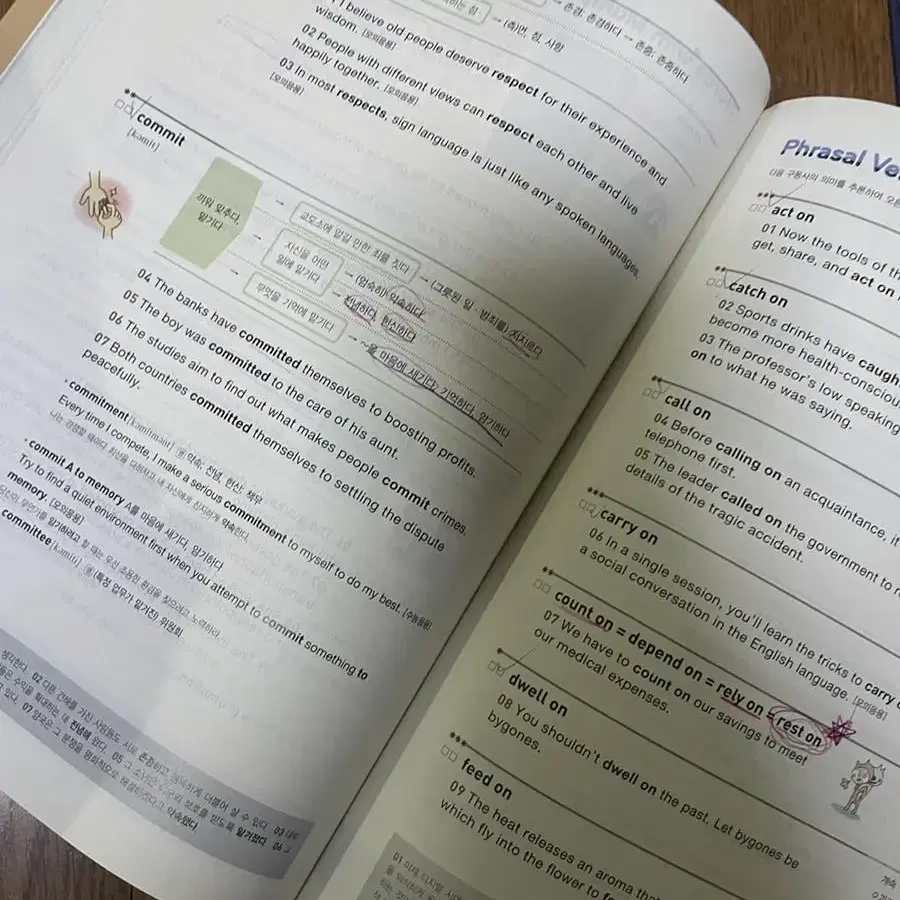 → 존경; 존경하다 → 존중; 존중하다
→ (측)면, 점, 사항
I believe old people deserve respect for their experience and
wisdom. [모의응용]
02 People with different views can respect each other and live
happily together. [모의응용]
03 In most respects, sign language is just like any spoken languages.
[모의응용]
commit
[kəmít]
끼워 맞추다,
맡기다
→ 교도소에 맡길 만한 죄를 짓다 → (그릇된 일·범죄를) 저지르다
→ 자신을 어떤
일에 맡기다 → (엄숙히) 약속하다
전념하다, 헌신하다
→ 무엇을 기억에 맡기다 → ~을 마음에 새기다; 기억하다, 암기하다
04 The banks have committed themselves to boosting profits.
05 The boy was committed to the care of his aunt.
06 The studies aim to find out what makes people commit crimes.
07 Both countries committed themselves to settling the dispute
peacefully.
commitment [kəmítmənt] 명 약속; 전념, 헌신; 책무
Every time I compete, I make a serious commitment to myself to do my best. [수능응용]
나는 경쟁할 때마다 최선을 다하자고 내 자신에게 진지하게 약속한다.
commit A to memory A를 마음에 새기다, 암기하다
Try to find a quiet environment first when you attempt to commit something to
memory. [모의응용]
당신이 무언가를 암기하려고 할 때는 우선 조용한 환경을 찾으려고 노력하라.
committee [kəmíti] 명 (특정 업무가 맡겨진) 위원회
생각한다. 02 다른 견해를 가진 사람들도 서로 존중하고 행복하게 더불어 살 수 있다. 03
수익을 확대하는 데 전념해 왔다. 05 그 소년은 보호를 받도록 맡겨졌다. 06 그
있다. 07 양국은 그 분쟁을 평화적으로 해결하겠다고 약속했다.
Phrasal Ve
다음 구동사의 의미를 추론하여 오른
act on
01 Now the tools of th
get, share, and act on
catch on
02 Sports drinks have caugh
become more health-conscious
03 The professor's low speaking
on to what he was saying.
call on
04 Before calling on an acquaintance, it
telephone first.
05 The leader called on the government to r
details of the tragic accident.
carry on
06 In a single session, you'll learn the tricks to carry o
a social conversation in the English language. [모의응용]
count on = depend on = rely on = rest on
07 We have to count on our savings to meet
our medical expenses.
dwell on
08 You shouldn't dwell on the past. Let bygones be
bygones.
feed on
09 The heat releases an aroma that
which fly into the flower to fe
계속